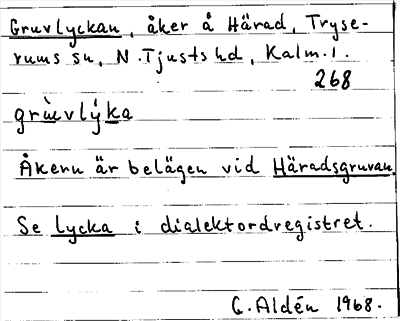 Gruvlyckan, åker å Härad, Tryse-
rums sn, N. Tjusts hd, Kalm. l.
268
grùvlýka
Åkern är belägen vid Häradsgruvan.
Se lycka i dialektordregistret.
G. Aldén 1968.